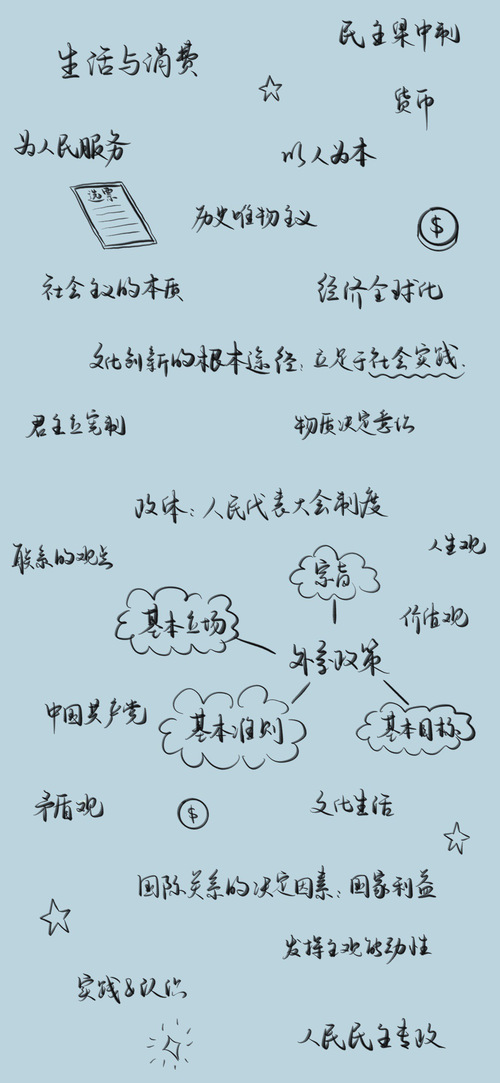 民主集中制
生活与消费
货币
为人民服务
以人为本
选票
历史唯物主义
$
社会主义的本质
经济全球化
文化创新的根本途径：立足于社会实践.
君主立宪制
物质决定意识
政体：人民代表大会制度
人生观
联系的观点
宗旨
基本立场
价值观
外交政策
中国共产党
基本准则
基本目标
矛盾观
$
文化生活
国际关系的决定因素：国家利益
发挥主观能动性
实践&认识
人民民主专政